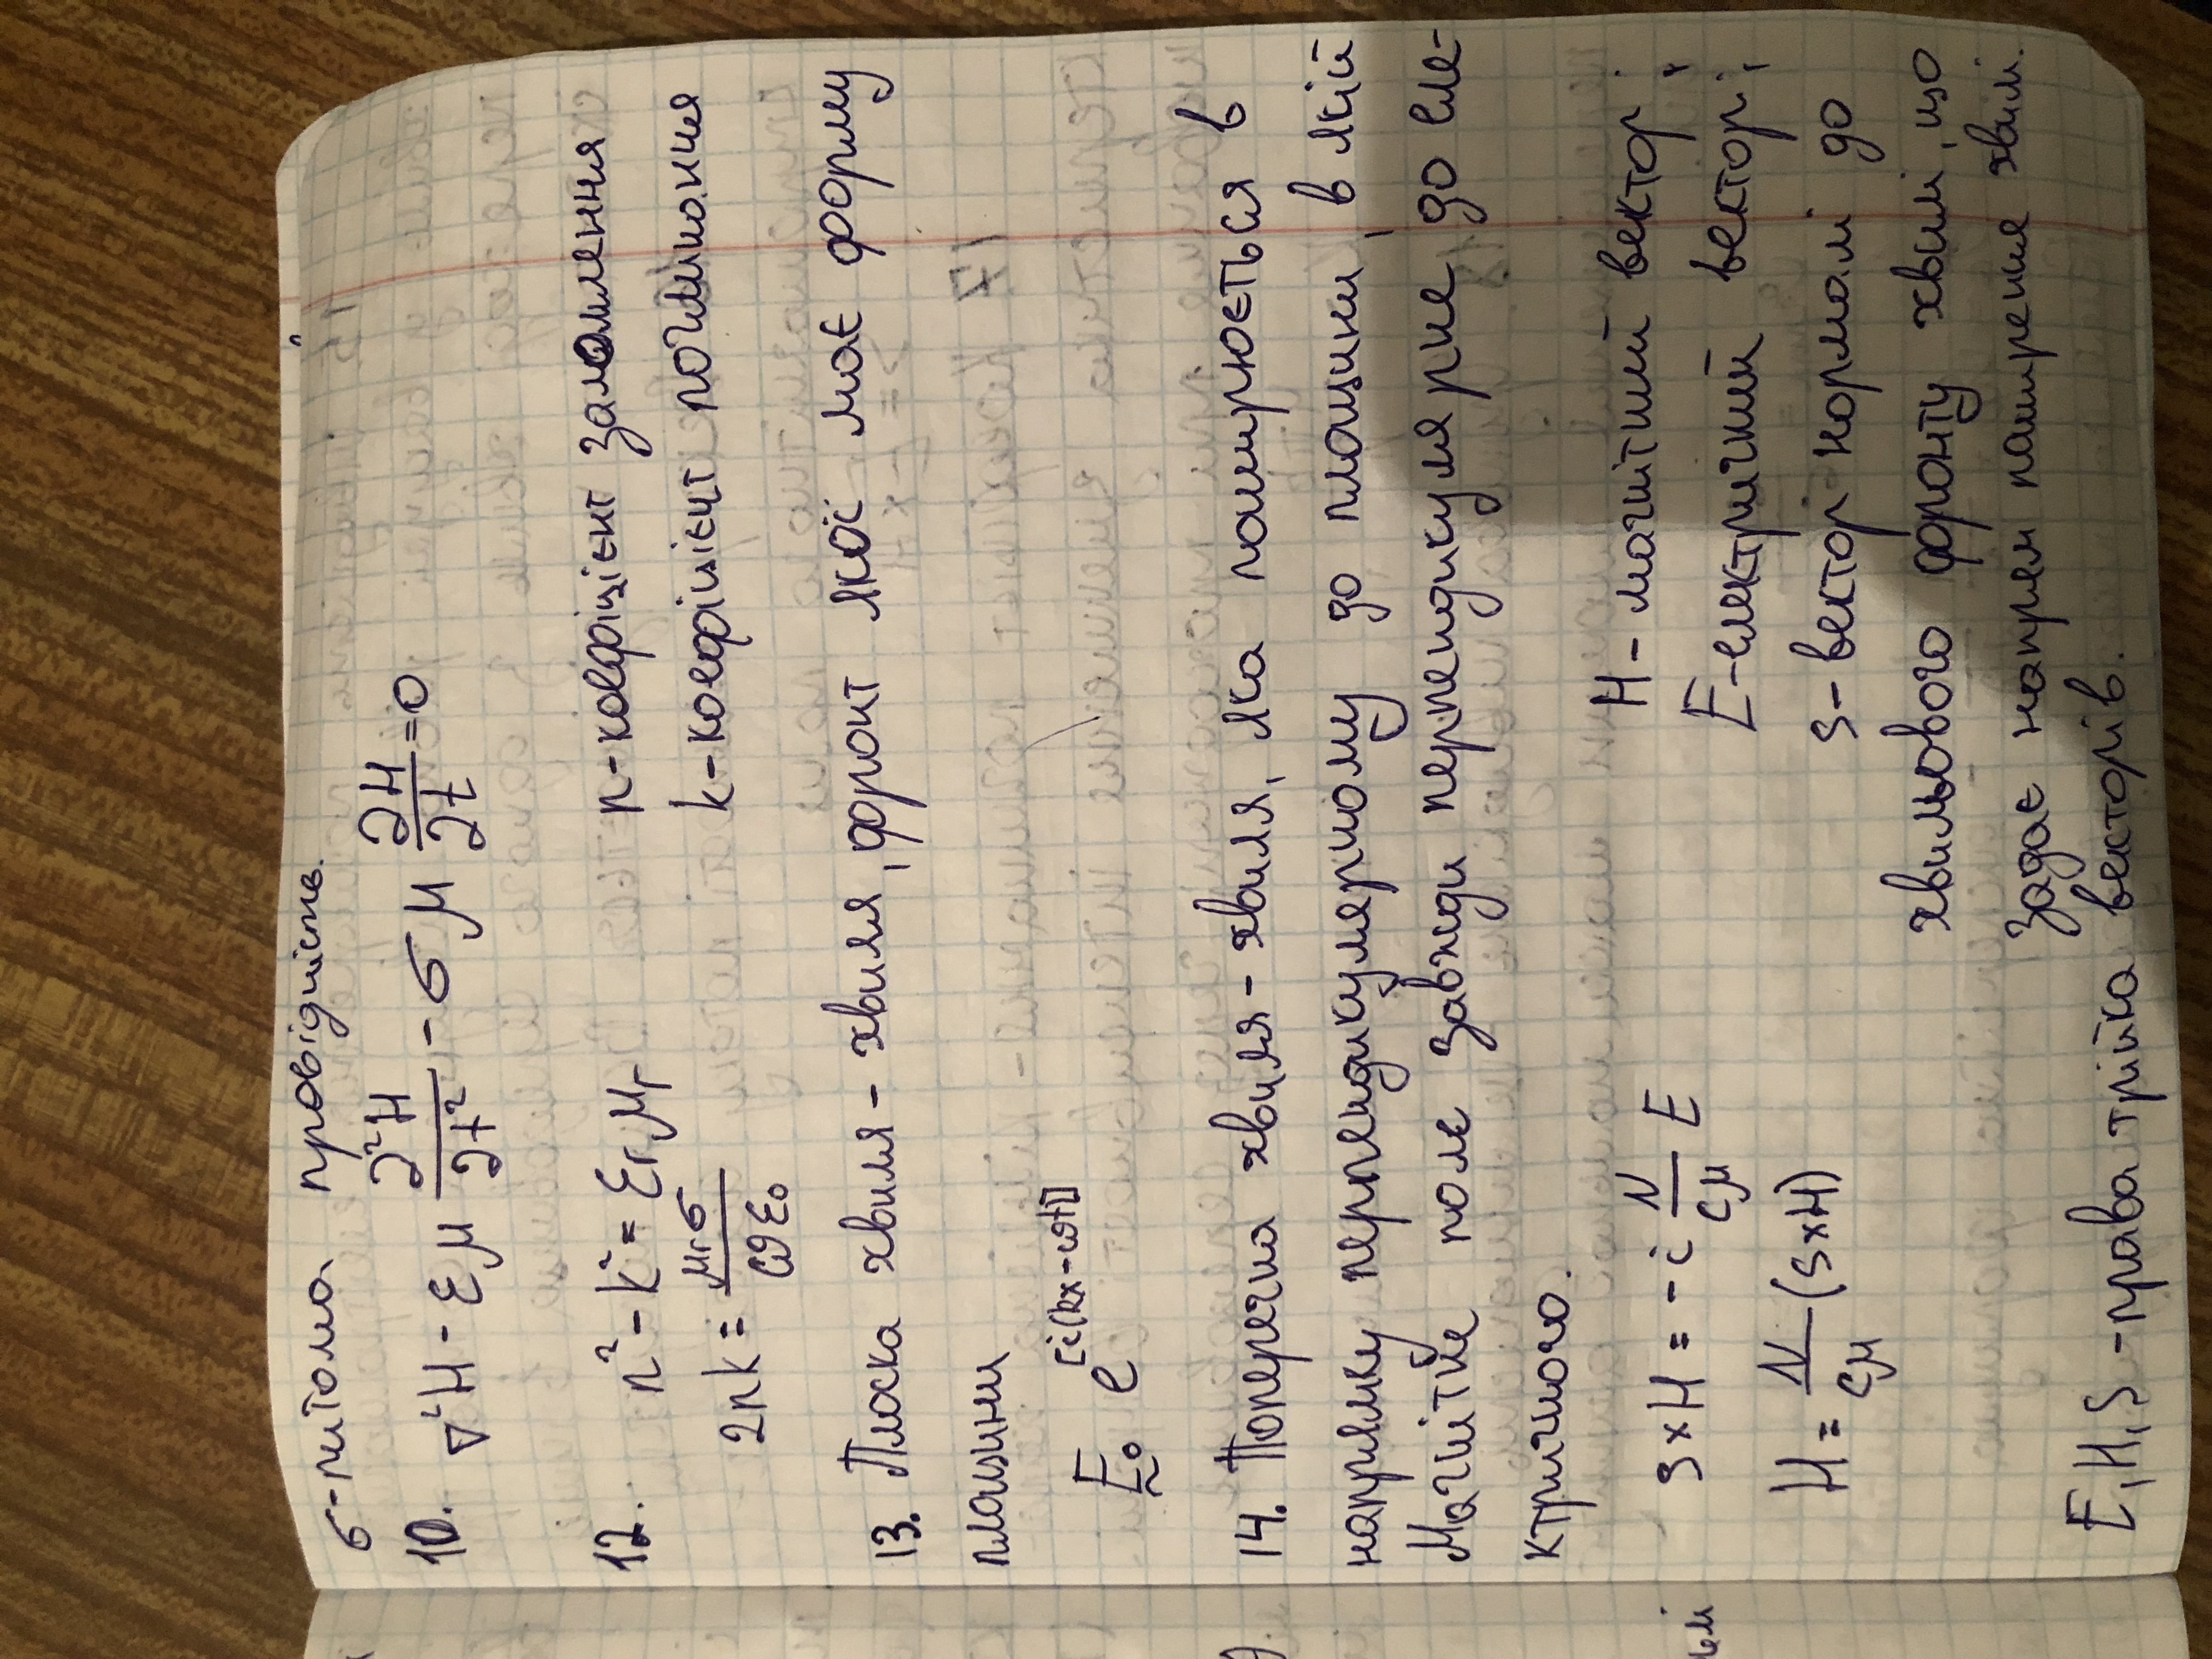 σ-питома провідність.
10. ∇²H - εμ ∂²H/∂t² - σμ ∂H/∂t = 0
12. n² - k² = εrμr n-коефіцієнт заломлення
2nk = μrσ/ωε₀ k-коефіцієнт поглинання
13. Плоска хвиля - хвиля, фронт якої має форму
площини
E₀ e^[i(kx-ωt)]
14. Поперечна хвиля - хвиля, яка поширюється в
напрямку перпендикулярному до площини, в якій
Магнітне поле завжди перпендикулярне до еле-
ктричного.
H - магнітний вектор;
s×H = -i N/cμ E
E-електричний вектор;
H = N/cμ (s×H)
s-вектор нормалі до
хвильового фронту хвилі, що
задає напрям поширення хвилі.
E, H, S - права трійка векторів.